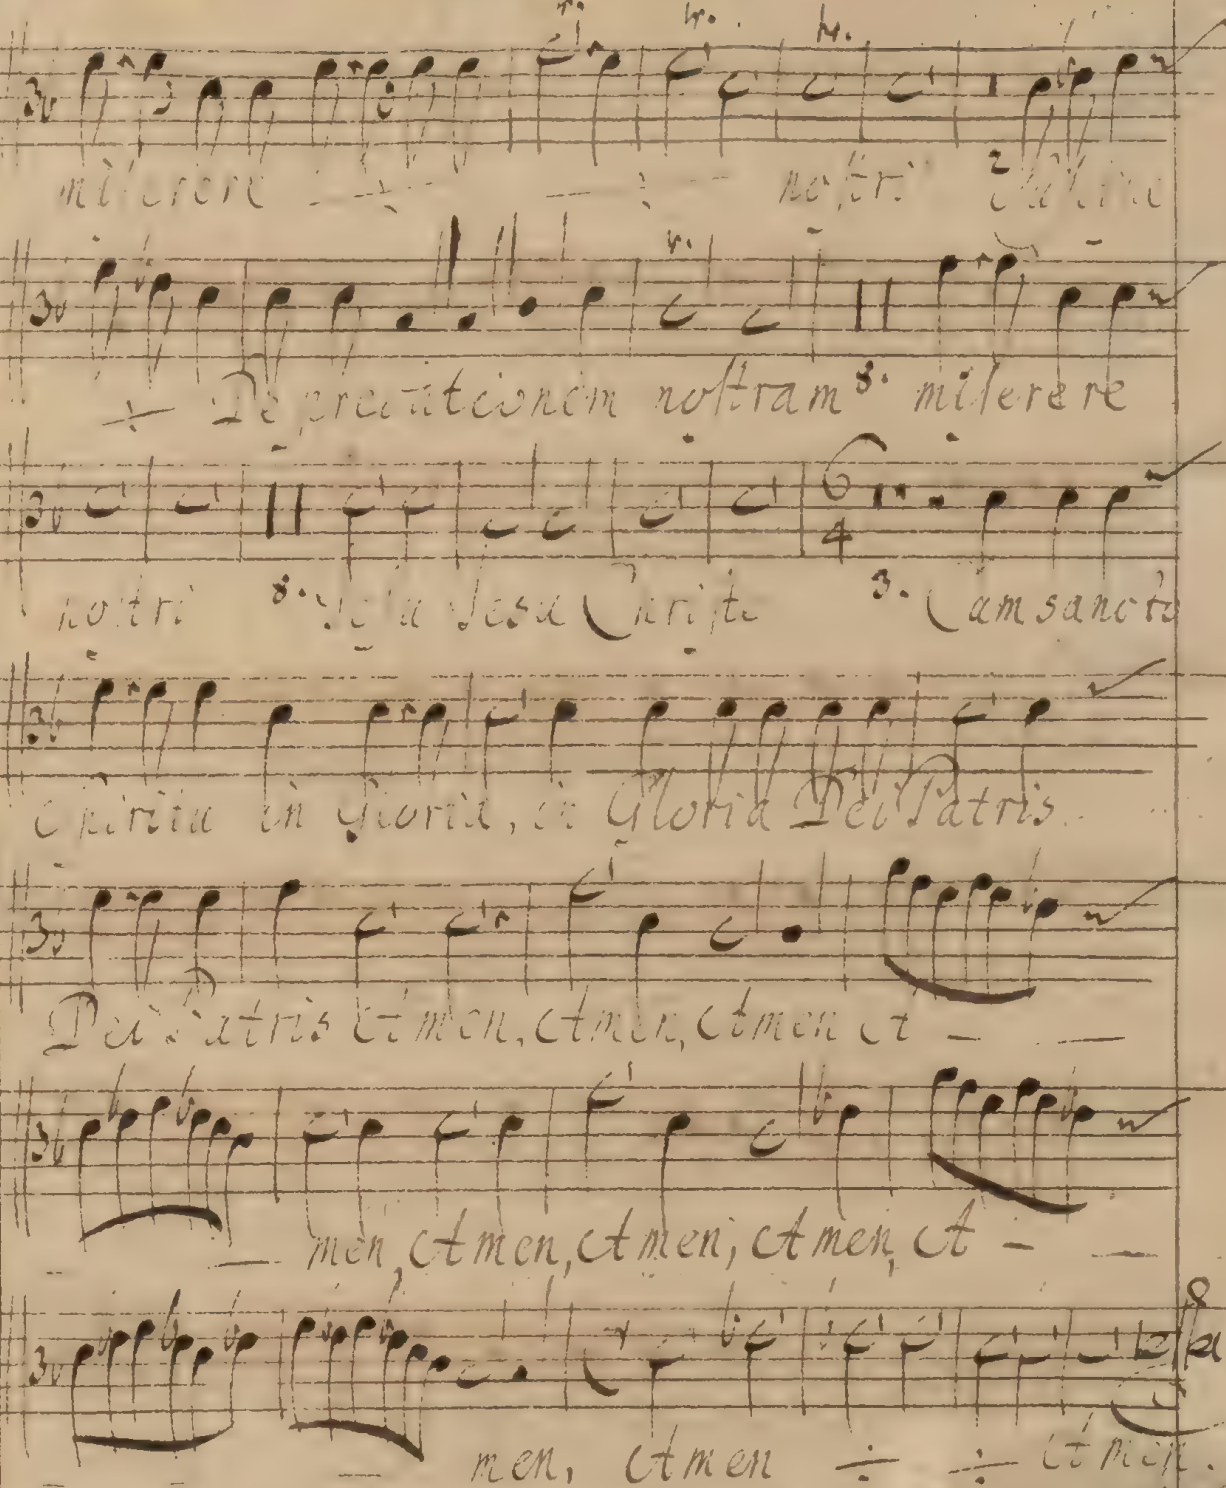 miserere ÷ ÷ nostri 2 Suscipe
÷ Deprecationem nostram 8. miserere
nostri 8. Jesu Christe 6 4 3. Cum sancto
Spiritu in Gloria, in Gloria Dei Patris
Dei Patris Amen, Amen, Amen A —
— men, Amen, Amen, Amen, A — —
— men, Amen ÷ ÷ Amen.